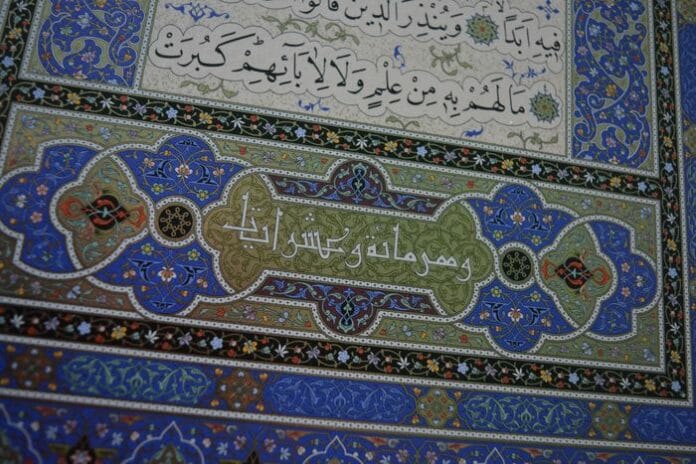 فِيهِ اَبَدًا وَيُنْذِرَ الَّذِينَ قَالُوا
مَا لَهُمْ بِهِ مِنْ عِلْمٍ وَلَا لِاٰبَائِهِمْ كَبُرَتْ
وهى مائة وعشر ايات